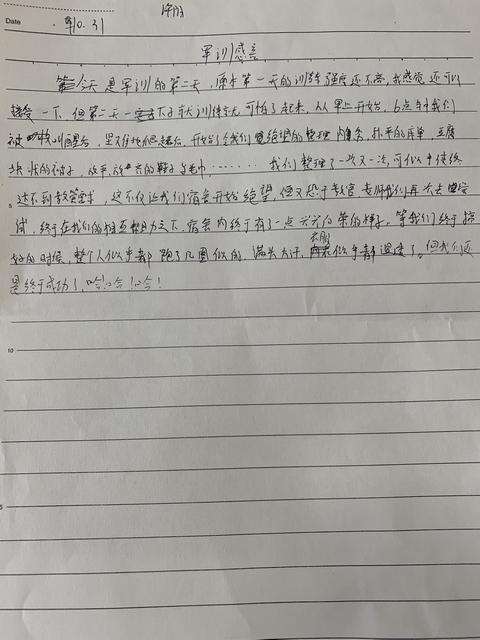 Date 10.31
军训感言
今天是军训的第二天，原本第一天的训练强度还不高，我感觉还可以
接受一下，但第二天一下子就训练
可怕了起来，从早上开始，6点钟我们
被叫醒后，开始了令我们绝望的整理内务，扑平的床单，豆腐
块状的被子，放平，放齐的鞋子与毛巾，……我们整理了一次又一次，可似乎始终
5
达不到教官要求，这不仅让我们宿舍开始绝望，但又恐于教官
我们再次去尝
试，终于在我们的相互努力之下，宿舍内终于有了一点
的样子。等我们终于搞
好的时候，整个人似乎都跑了几圈似的，满头大汗，衣服似乎都湿透了。但我们还
是终于成功了，哈哈！哈！
10
5